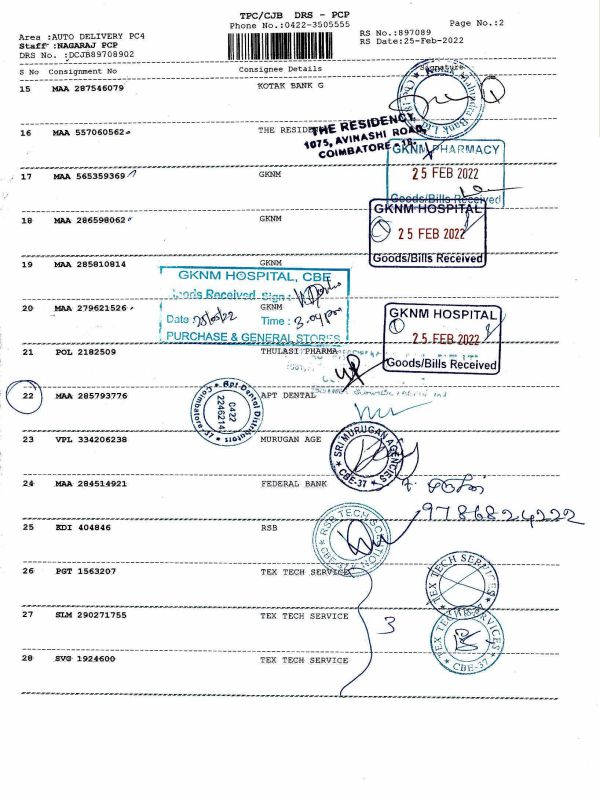 TPC/CJB DRS - PCP
Phone No.:0422-3505555
Page No.:2
Area :AUTO DELIVERY PC4
Staff :NAGARAJ PCP
DRS No. :DCJB89708902
RS No.:897089
RS Date:25-Feb-2022
S No Consignment No Consignee Details Signature
15 MAA 287546079 KOTAK BANK G
16 MAA 557060562 THE RESIDENCY
THE RESIDENCY,
1075, AVINASHI ROAD,
COIMBATORE - 18.
GKNM PHARMACY
25 FEB 2022
Goods/Bills Received
17 MAA 565359369 GKNM
GKNM HOSPITAL
25 FEB 2022
Goods/Bills Received
18 MAA 286598062 GKNM
19 MAA 285810814 GKNM
GKNM HOSPITAL, CBE
Goods Received Sign :
Date : 25/02/22 Time : 3.04pm
PURCHASE & GENERAL STORES
20 MAA 279621526 GKNM
GKNM HOSPITAL
25 FEB 2022
Goods/Bills Received
21 POL 2182509 THULASI PHARMA
22 MAA 285793776 APT DENTAL
Apt Dental Distributors
0422
2246214
Coimbatore-37
23 VPL 334206238 MURUGAN AGE
SRI MURUGAN AGENCIES
CBE-37
24 MAA 284514921 FEDERAL BANK
9786824222
25 KDI 404846 RSB
CBE-37
26 PGT 1563207 TEX TECH SERVICE
TEX TECH SERVICES
27 SLM 290271755 TEX TECH SERVICE
3
TEX TECH SERVICES
CBE-37
28 SVG 1924600 TEX TECH SERVICE